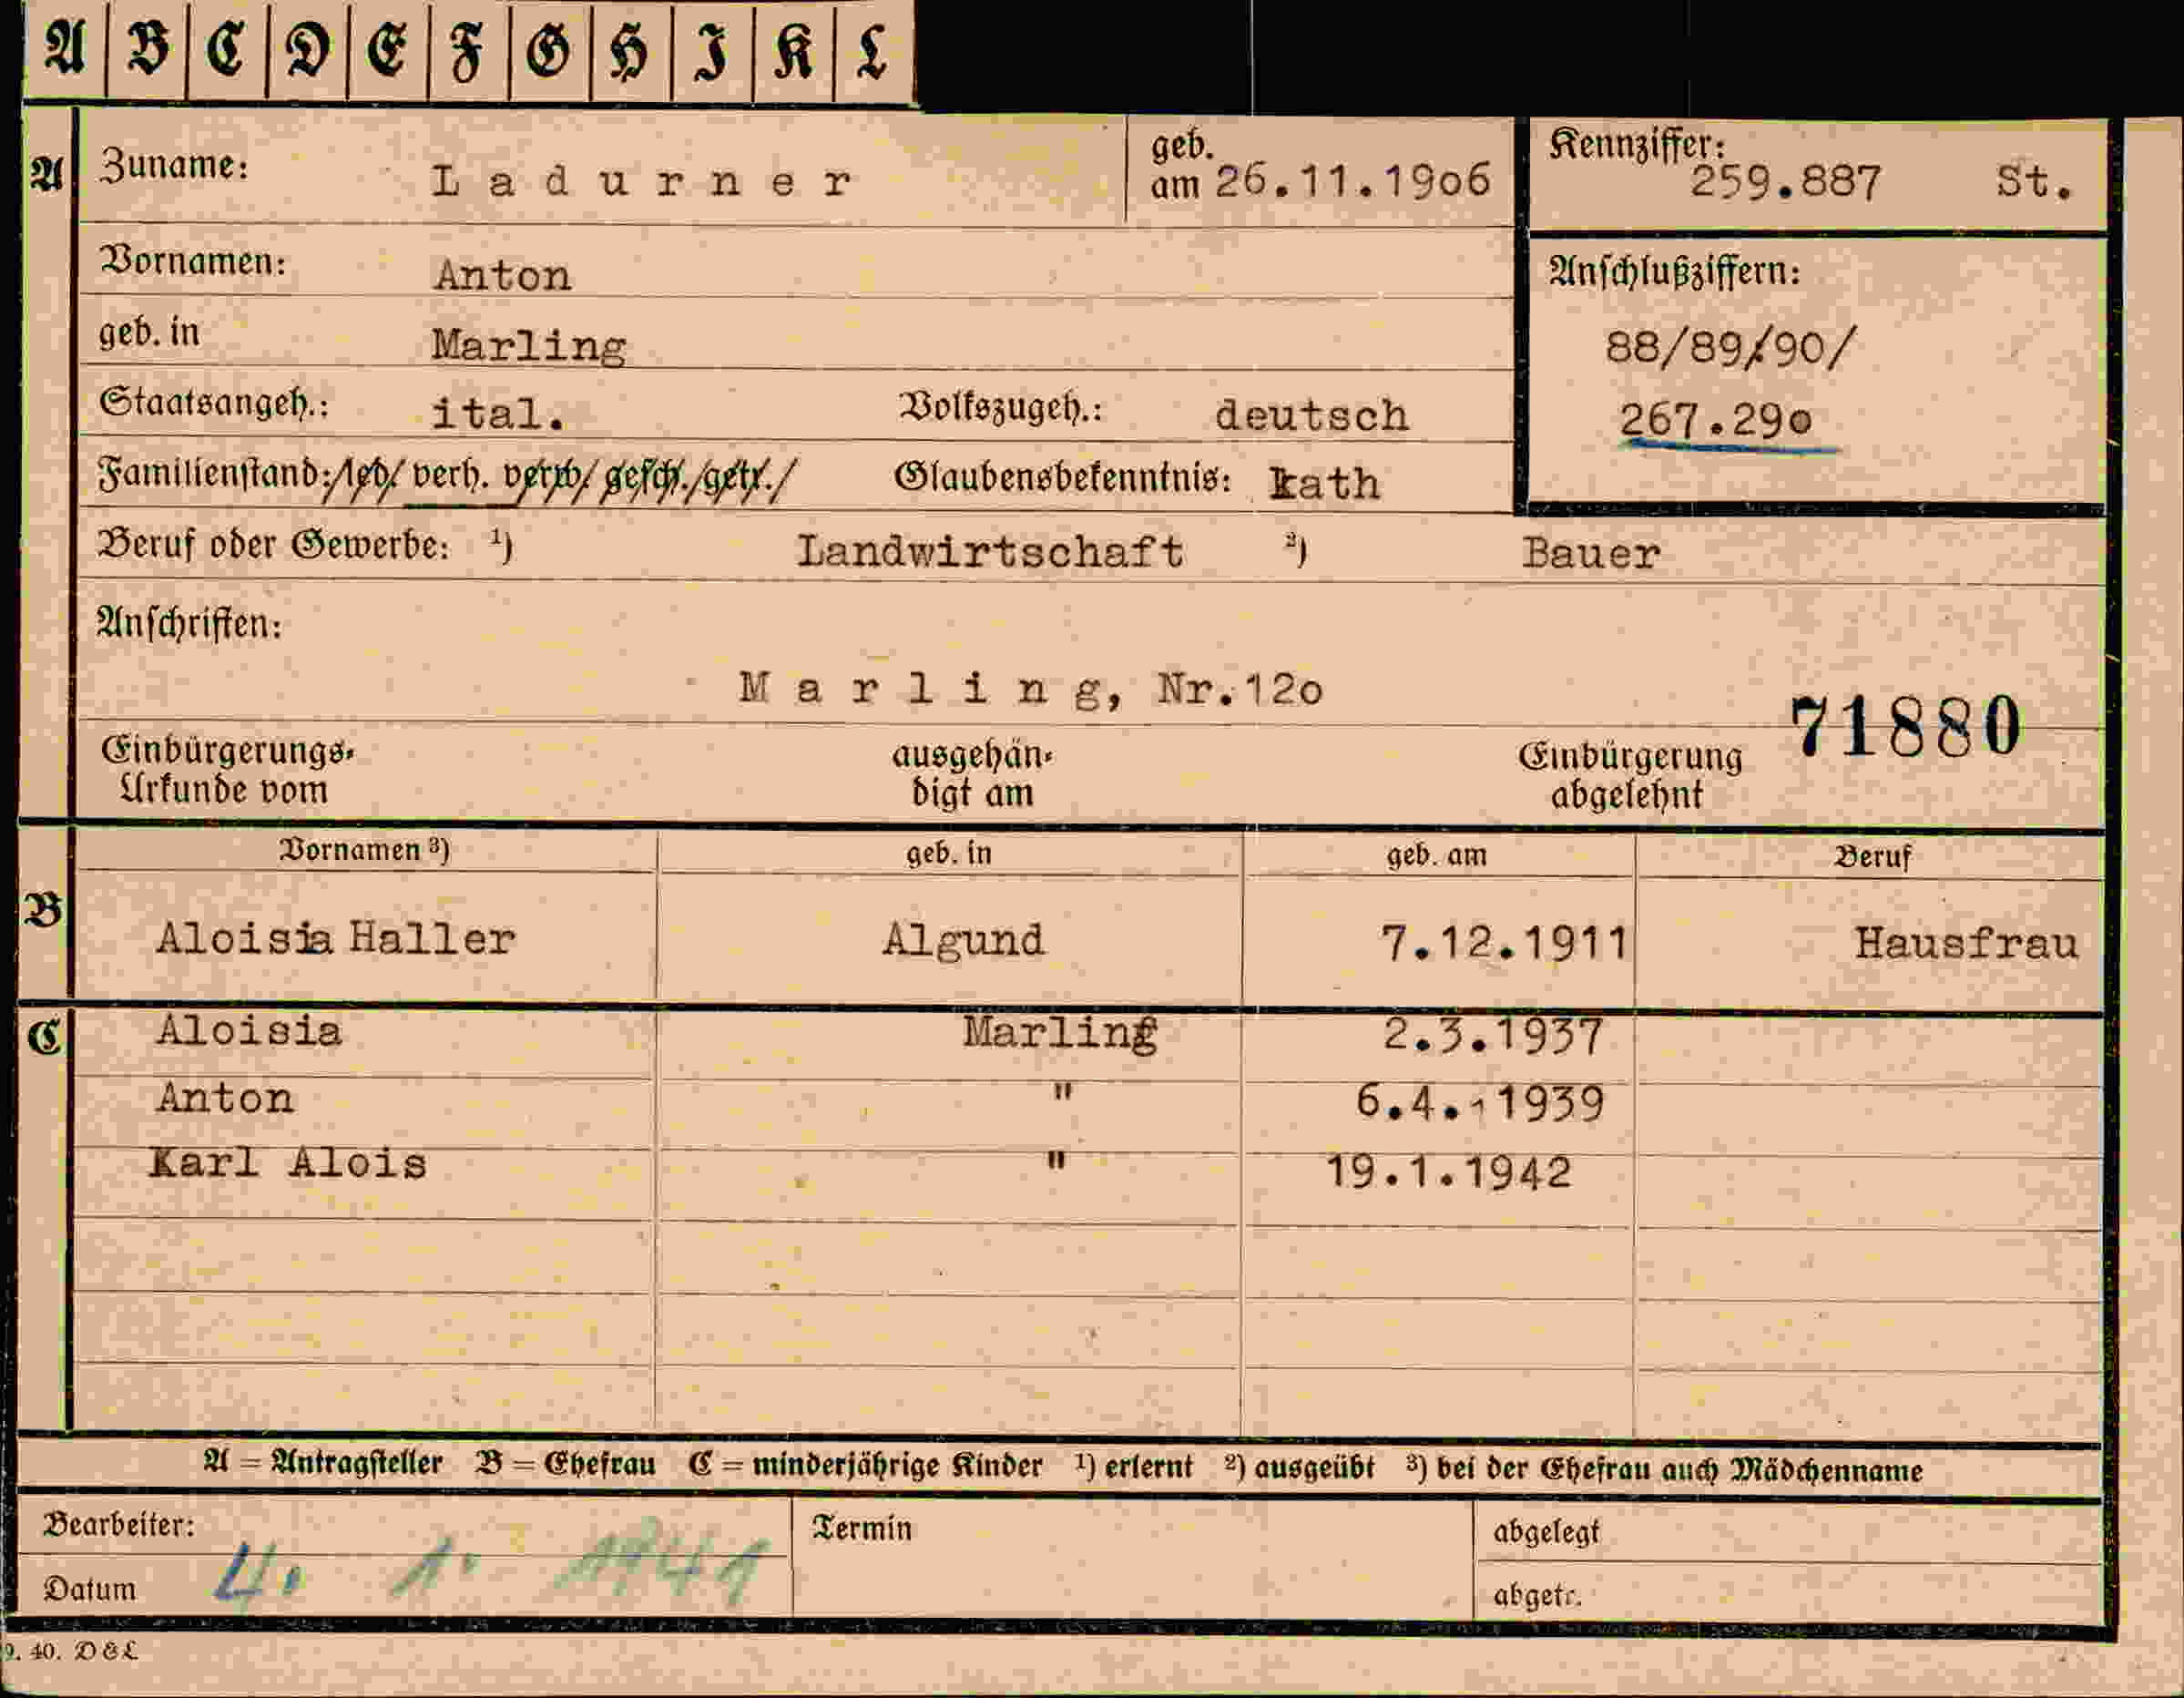 A B C D E F G H I K L
A Zuname: Ladurner geb. am 26.11.19o6 Kennziffer: 259.887 St.
Vornamen: Anton Anschlußziffern:
geb. in Marling 88/89/90/
Staatsangeh.: ital. Volkszugeh.: deutsch 267.29o
Familienstand: led/ verh. verw/ gesch./getr./ Glaubensbekenntnis: kath
Beruf oder Gewerbe: 1) Landwirtschaft 2) Bauer
Anschriften:
Marling, Nr.12o
71880
Einbürgerungs- ausgehän- Einbürgerung
Urkunde vom digt am abgelehnt
Vornamen 3) geb. in geb. am Beruf
B Aloisia Haller Algund 7.12.1911 Hausfrau
C Aloisia Marling 2.3.1937
Anton " 6.4.1939
Karl Alois " 19.1.1942
A = Antragsteller B = Ehefrau C = minderjährige Kinder 1) erlernt 2) ausgeübt 3) bei der Ehefrau auch Mädchenname
Bearbeiter: Termin abgelegt
Datum 4. 1. 1941 abgetr.
9. 40. D&L